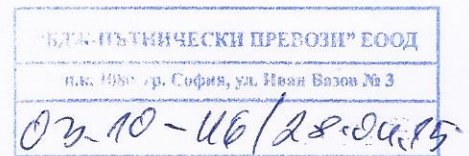 "БДЖ-ПЪТНИЧЕСКИ ПРЕВОЗИ" ЕООД
п.к. 1080 гр. София, ул. Иван Вазов № 3
03-10-46/28.04.15